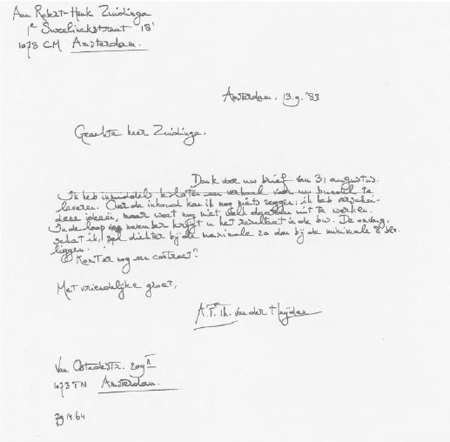 Aan Robert-Henk Zuidinga
1e Sweelinckstraat 18'
1073 CM Amsterdam.
Amsterdam. 13.9.'83
Geachte heer Zuidinga.
Dank voor uw brief van 31 augustus.
Ik heb inmiddels besloten een verhaal voor uw bundel te
leveren. Over de inhoud kan ik nog niets zeggen; ik heb verschei-
dene ideeën, maar weet nog niet welk daarvan uit te werken.
In de loop van november krijgt u het resultaat in de bus. De omvang,
schat ik, zal dichter bij de maximale 20 dan bij de minimale 8
liggen.
Komt er nog een contract?
Met vriendelijke groet,
A.F.Th. van der Heijden
Van Ostadestr. 209 II
1073 TN Amsterdam.